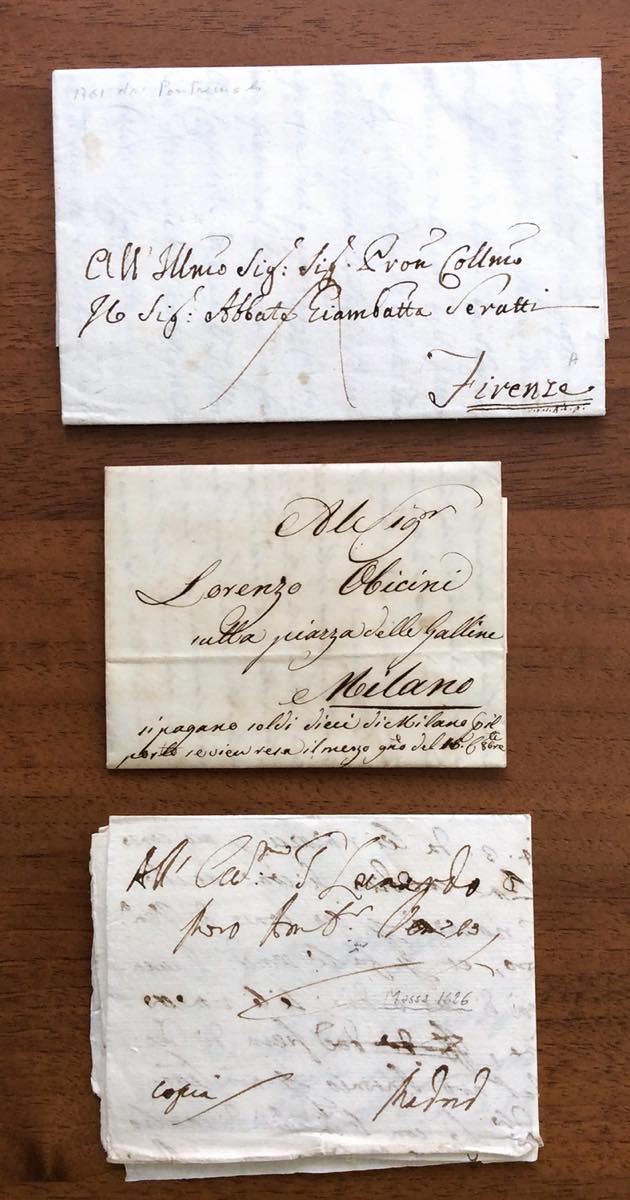 1761 da Pontremoli
All' Illmo Sigr: Sigr: Pron Collmo
Il Sigr: Abbate Giambatta Seratti
A
Firenze
Al Sigr
Lorenzo Obicini
sulla piazza delle Galline
Milano
si pagano soldi dieci di Milano
porto se vien resa il mezzo del
All' T Lunardo
Moro Ambr
Mosse 1626
copia Madrid